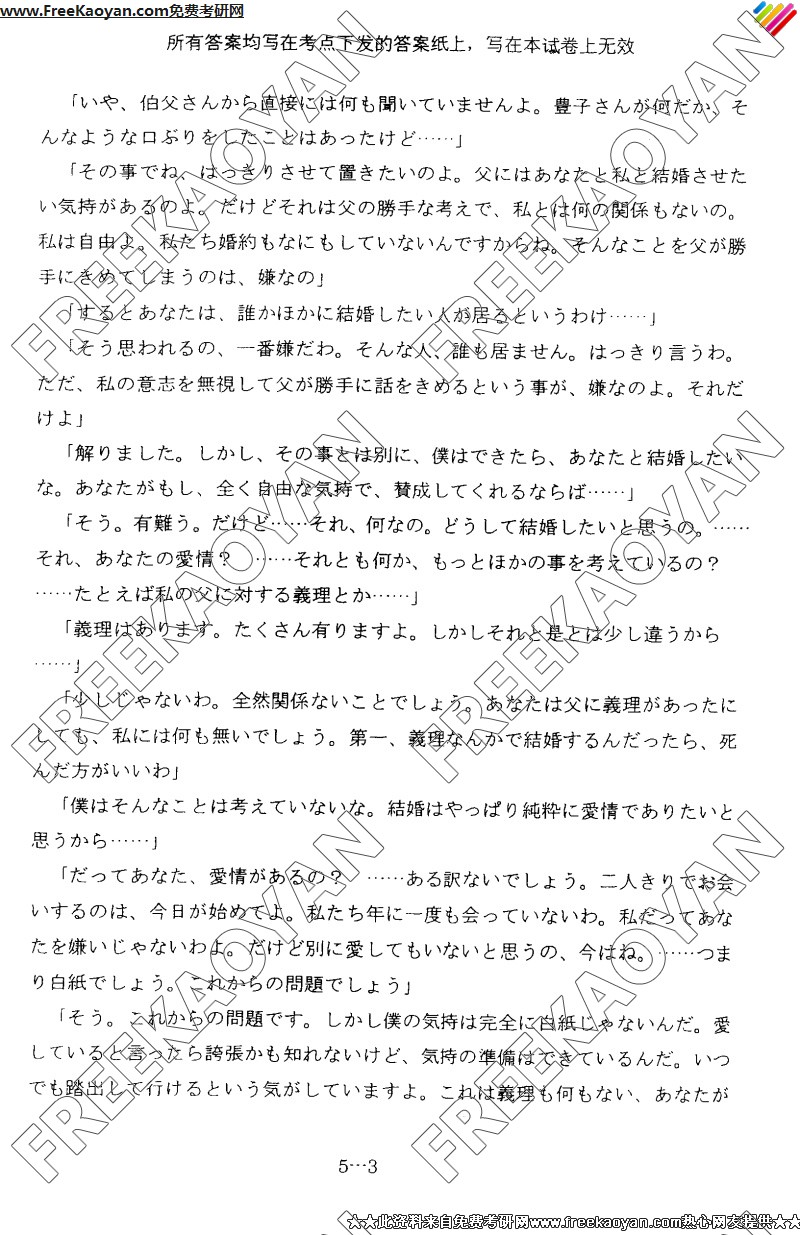 www.FreeKaoyan.com免费考研网
所有答案均写在考点下发的答案纸上，写在本试卷上无效
「いや、伯父さんから直接には何も聞いていませんよ。豊子さんが何だか、そ
んなような口ぶりをしたことはあったけど……」
「その事でね、はっきりさせて置きたいのよ。父にはあなたと私と結婚させた
い気持があるのよ。だけどそれは父の勝手な考えで、私とは何の関係もないの。
私は自由よ。私たち婚約もなにもしていないんですからね。そんなことを父が勝
手にきめてしまうのは、嫌なの」
「するとあなたは、誰かほかに結婚したい人が居るというわけ……」
「そう思われるの、一番嫌だわ。そんな人、誰も居ません。はっきり言うわ。
ただ、私の意志を無視して父が勝手に話をきめるという事が、嫌なのよ。それだ
けよ」
「解りました。しかし、その事とは別に、僕はできたら、あなたと結婚したい
な。あなたがもし、全く自由な気持で、賛成してくれるならば……」
「そう。有難う。だけど……それ、何なの。どうして結婚したいと思うの。……
それ、あなたの愛情？　……それとも何か、もっとほかの事を考えているの？
……たとえば私の父に対する義理とか……」
「義理はあります。たくさん有りますよ。しかしそれと是とは少し違うから
……」
「少しじゃないわ。全然関係ないことでしょう。あなたは父に義理があったに
しても、私には何も無いでしょう。第一、義理なんかで結婚するんだったら、死
んだ方がいいわ」
「僕はそんなことは考えていないな。結婚はやっぱり純粋に愛情でありたいと
思うから……」
「だってあなた、愛情があるの？　……ある訳ないでしょう。二人きりでお会
いするのは、今日が始めてよ。私たち年に一度も会っていないわ。私だってあな
たを嫌いじゃないわよ。だけど別に愛してもいないと思うの、今はね。……つま
り白紙でしょう。これからの問題でしょう」
「そう。これからの問題です。しかし僕の気持は完全に白紙じゃないんだ。愛
していると言ったら誇張かも知れないけど、気持の準備はできているんだ。いつ
でも踏出して行けるという気がしていますよ。これは義理も何もない、あなたが
5…3
★★此资料来自免费考研网www.freekaoyan.com热心网友提供★★
FREEKAOYAN
FREEKAOYAN
FREEKAOYAN
FREEKAOYAN
FREEKAOYAN
FREEKAOYAN